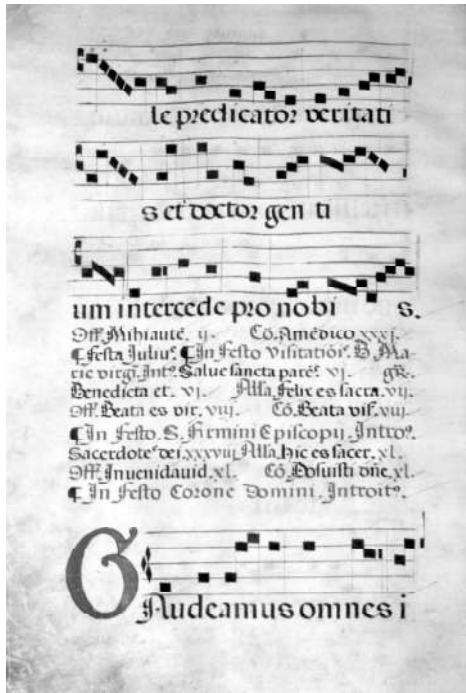 le predicator veritati
s et doctor gen ti
um intercede pro nobi s.
Off. Mihi auté. ij. Cō. Amédico xxxj.
¶ Festa Julius. ¶ In Festo visitatiōis. B. Ma
rie virgī. Intº. Salue sancta parēs. vj. gr̄.
Benedicta et. vj. Alla. Felix es sacra. vij.
Off. Beata es vir. viij. Cō. Beata vis. viij.
¶ In Festo. S. Firmini Episcopi. Introº.
Sacerdotes dei. xxxviij. Alla. hic es sacer. xl.
Off. Inueni dauid. xl. Cō. Posuisti dñe. xl.
¶ In Festo Corone Domini. Introitº.
GAudeamus omnes i